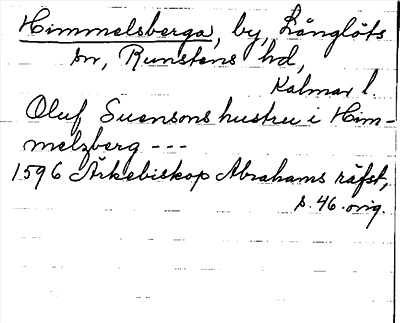 Himmelsberga, by, Långlöts
sn, Runstens hd,
Kalmar l.
Oluf Suensons hustru i Him-
melzberg ---
1596 Ärkebiskop Abrahams räfst,
s. 46. orig.